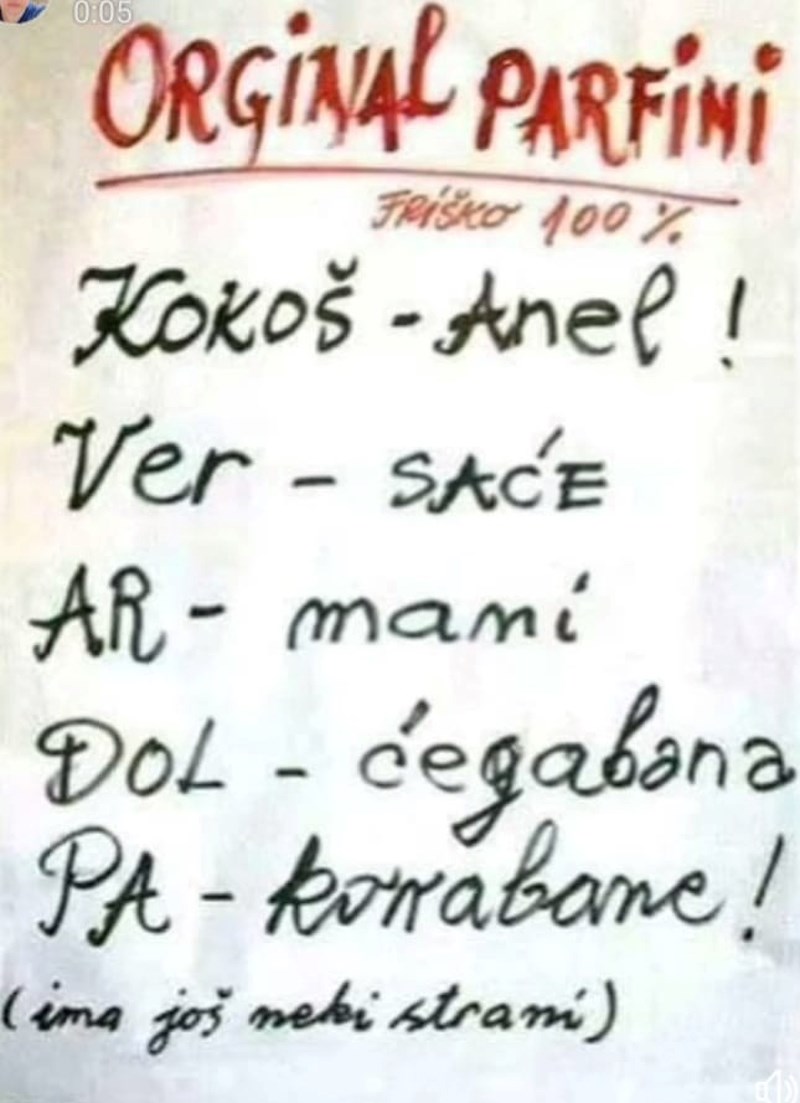 0:05
ORGINAL PARFINI
FRIŠKO 100%
Kokoš - Anel !
Ver - SAĆE
AR - mani
DOL - ćegabana
PA - korabane !
(ima još neki strani)